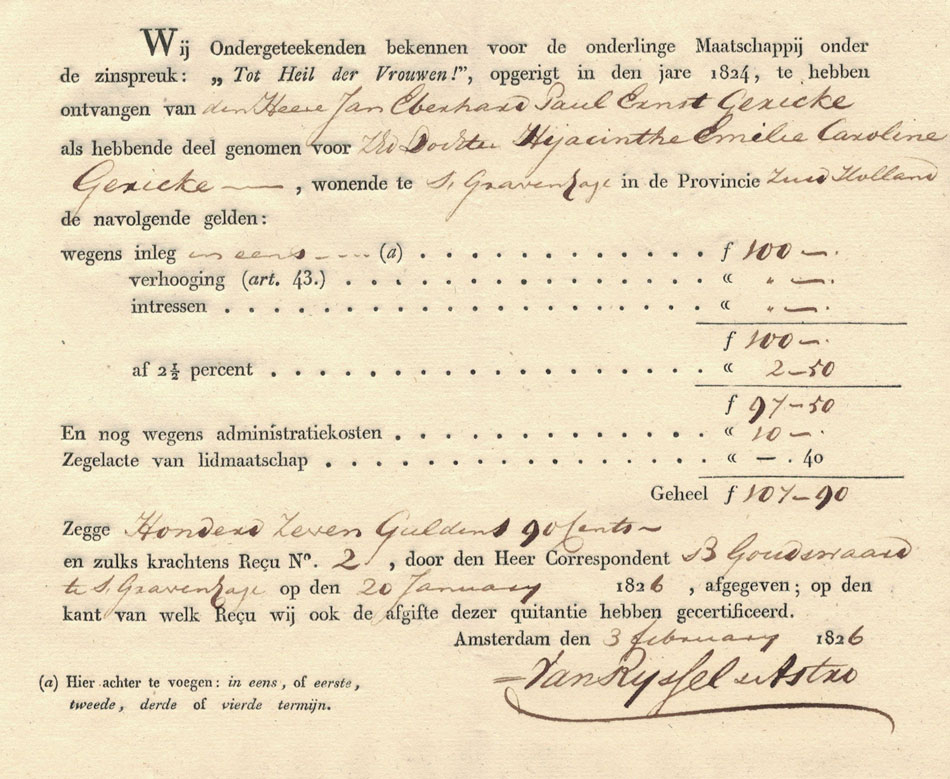 Wij Ondergeteekenden bekennen voor de onderlinge Maatschappij onder
de zinspreuk: „ Tot Heil der Vrouwen!", opgerigt in den jare 1824, te hebben
ontvangen van den Heere Jan Eberhard Paul Ernst Gericke
als hebbende deel genomen voor Dochter Hyacinthe Emilie Caroline
Gericke — , wonende te S. Gravenhage in de Provincie Zuid Holland
de navolgende gelden:
wegens inleg in eens (a) . . . . . . . . . . . . f 100 —.
verhooging (art. 43.) . . . . . . . . . . . . « " —.
intressen . . . . . . . . . . . . « " —.
f 100 —.
af 2½ percent . . . . . . . . . . . . « 2 – 50
f 97 – 50
En nog wegens administratiekosten . . . . . . . . . . . . « 10 —.
Zegelacte van lidmaatschap . . . . . . . . . . . . « — . 40
Geheel f 107 – 90
Zegge Honderd Zeven Guldens 90 Cents –
en zulks krachtens Reçu N°. 2 , door den Heer Correspondent B Goudswaard
te S. Gravenhage op den 20 January 1826 , afgegeven; op den
kant van welk Reçu wij ook de afgifte dezer quitantie hebben gecertificeerd.
Amsterdam den 3 february 1826
Van Ryssel Astro
(a) Hier achter te voegen: in eens, of eerste,
tweede, derde of vierde termijn.